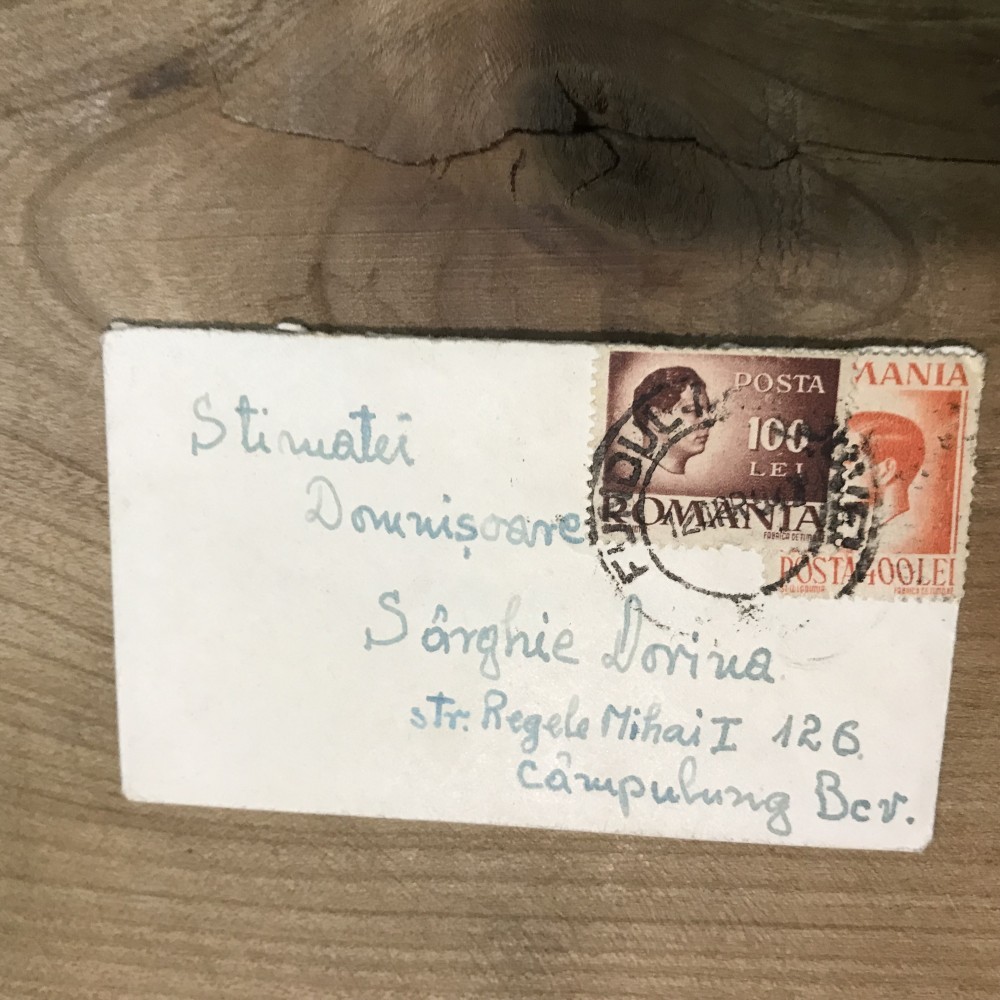 Stimatei
Domnișoare
Sârghie Dorina
str. Regele Mihai I 126.
Câmpulung Bcv.
POSTA
100
LEI
ROMANIA
FABRICA DE TIMBRE
MANIA
POSTA 400 LEI